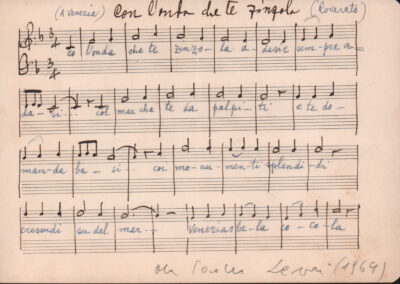 (A Venezia) Con l'onda che te zinzola (Rovereto)
3 4 co l'onda che te zinzo-la a-dasi e sem-pre a-
3 4
da-si... col mar che te da palpi-ti e te do-
man-da ba-si... coi mo-nu-men-ti splendi-di
cressendi su dal mar... Venezia be-la co-co-la
(1964)